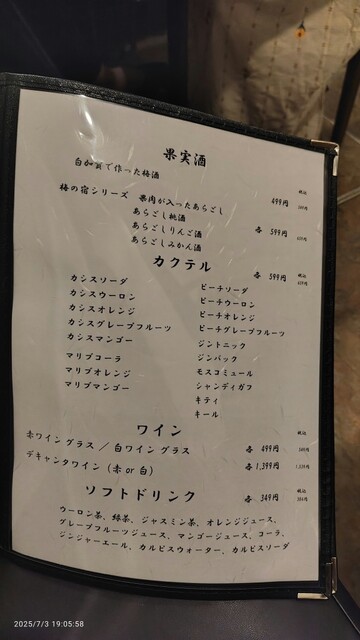 果実酒
自加賀で作った梅酒 499円
梅の宿シリーズ 果肉が入ったあらごし
あらごし桃酒
あらごしりんご酒 各 599円
あらごしみかん酒
カクテル 各 599円
カシスソーダ ピーチソーダ
カシスウーロン ピーチウーロン
カシスオレンジ ピーチオレンジ
カシスグレープフルーツ ピーチグレープフルーツ
カシスマンゴー ジントニック
ジンバック
マリブコーラ モスコミュール
マリブオレンジ シャンディガフ
マリブマンゴー キティ
キール
ワイン
赤ワイングラス / 白ワイングラス 各 499円
デキャンタワイン (赤 or 白) 各 1,399円
ソフトドリンク 各 349円
ウーロン茶、緑茶、ジャスミン茶、オレンジジュース、
グレープフルーツジュース、マンゴージュース、コーラ、
ジンジャーエール、カルピスウォーター、カルピスソーダ
2025/7/3 19:05:58